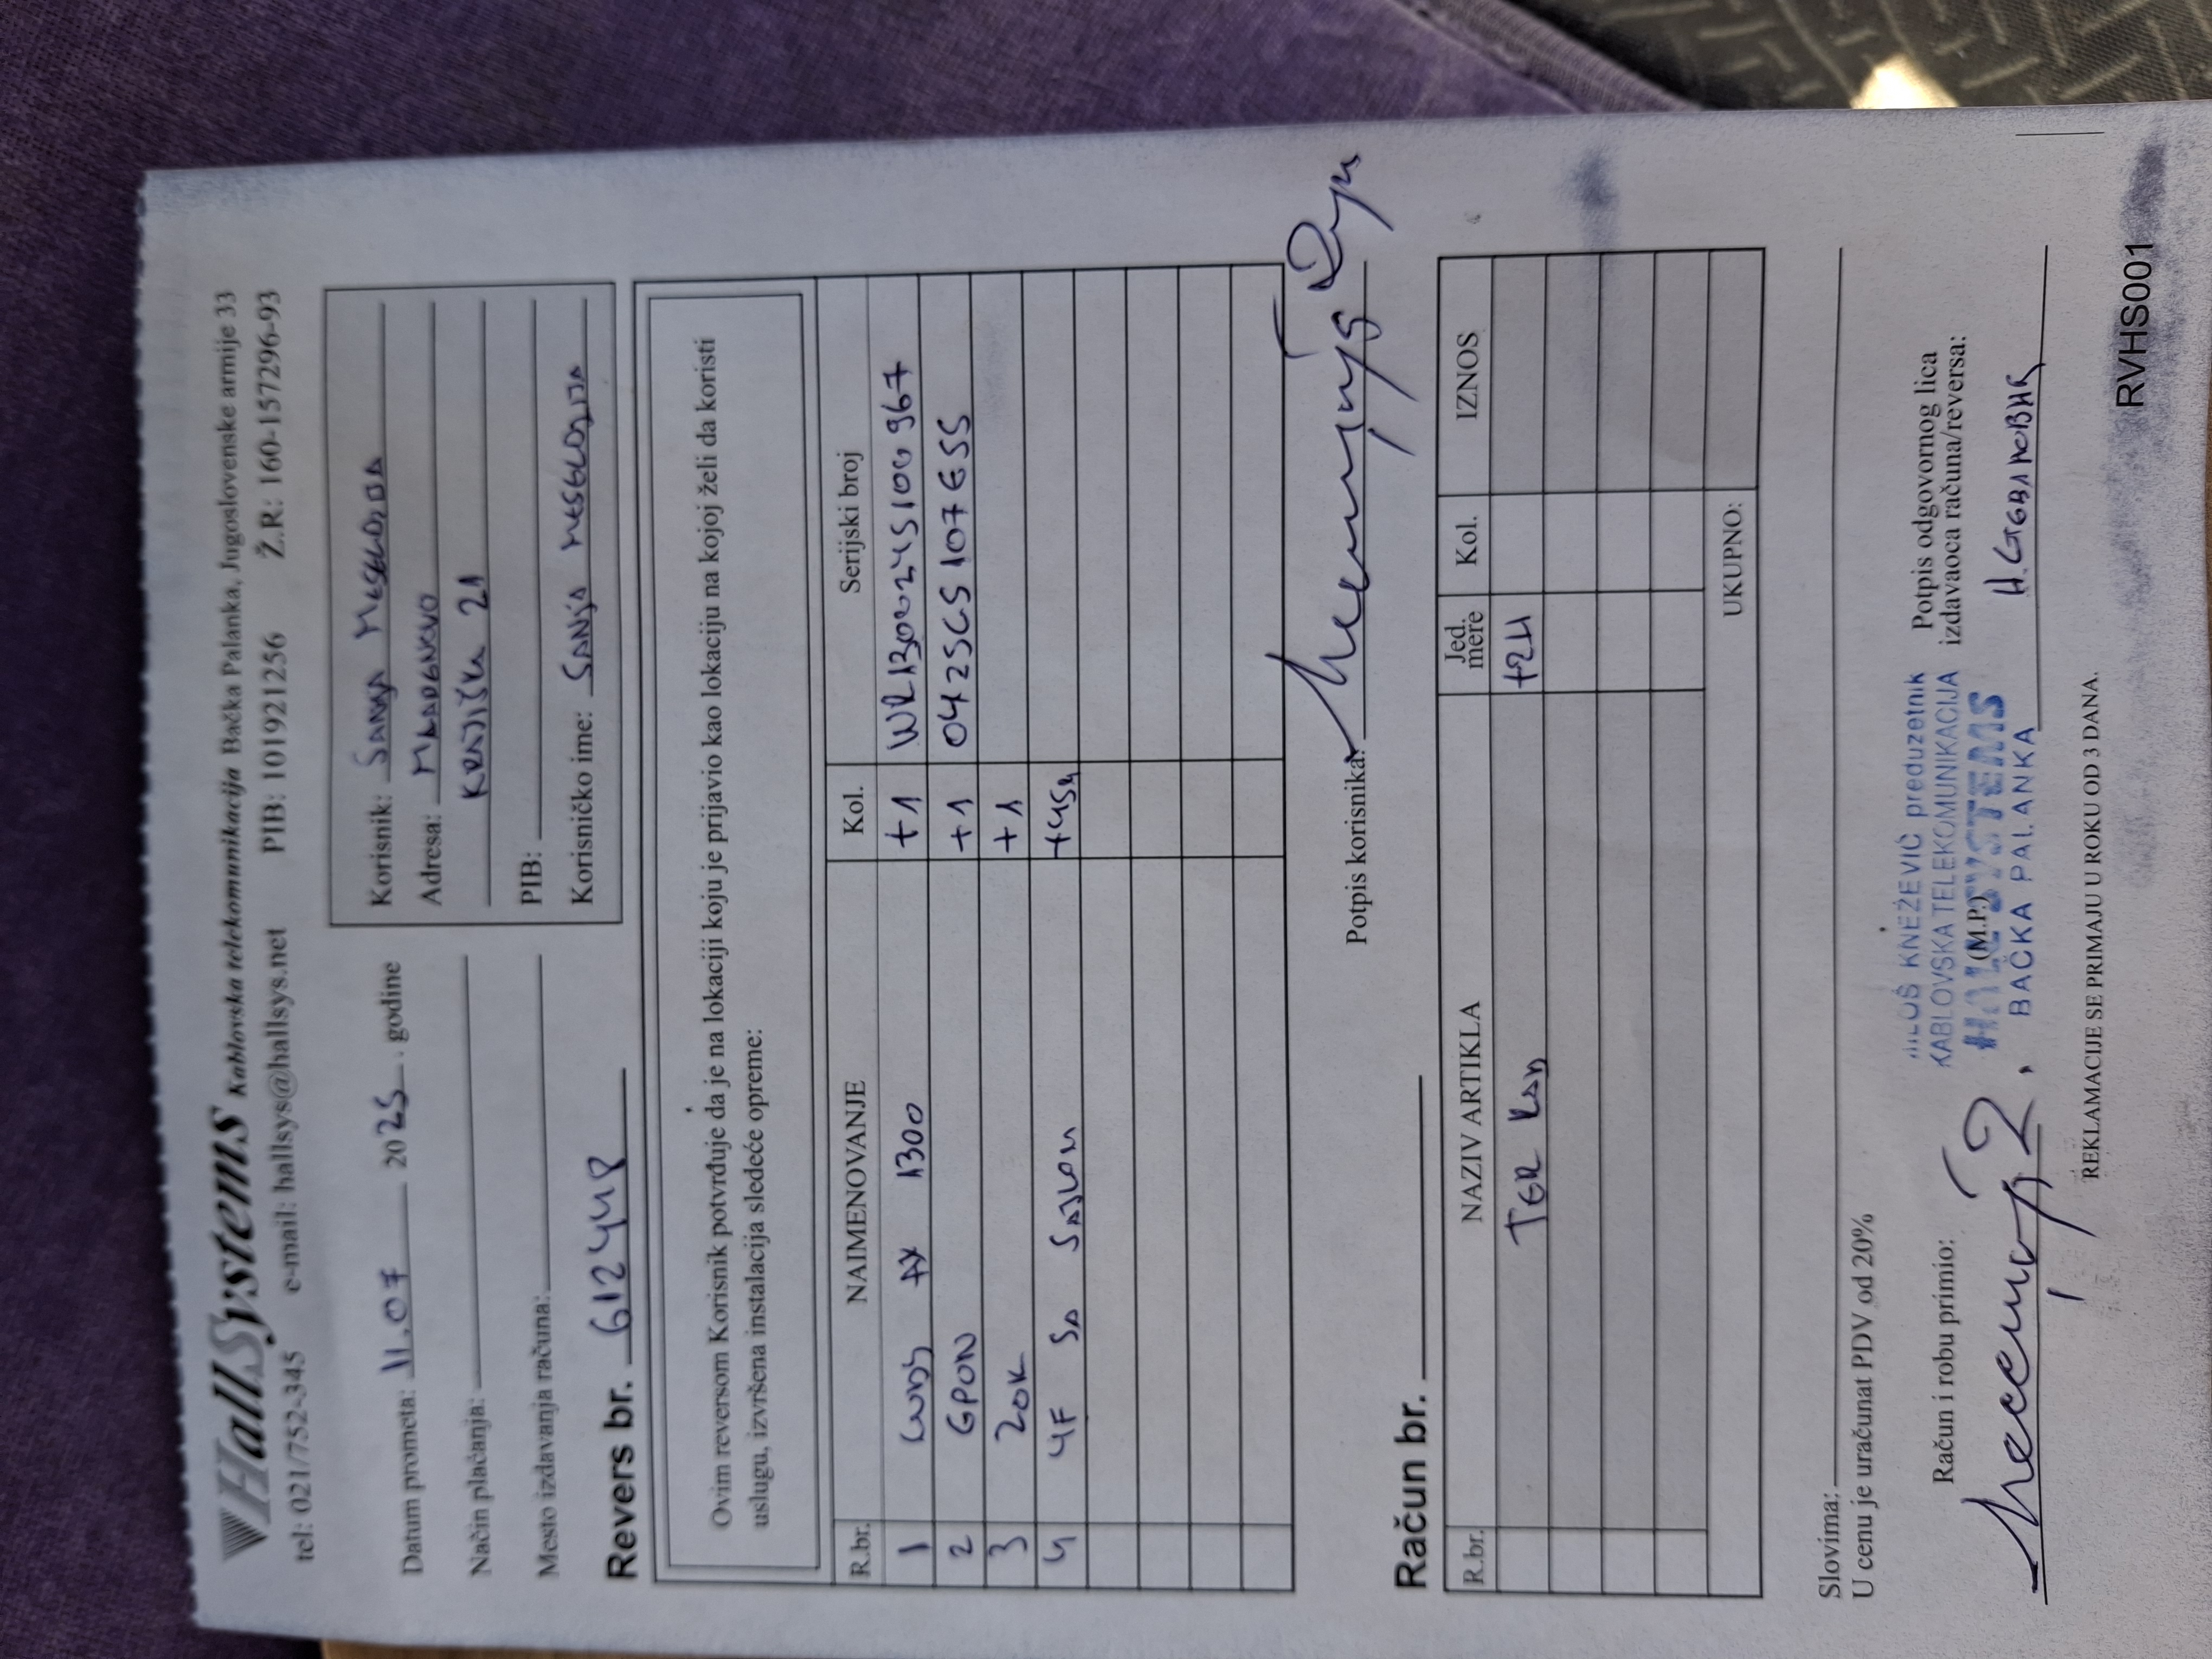 HallSystems Kablovska telekomunikacija Bačka Palanka, Jugoslovenske armije 33
tel: 021/752-345 e-mail: hallsys@hallsys.net PIB: 101921256 Ž.R.: 160-157296-93
Datum prometa: 11.07 2025. godine
Način plaćanja:
Mesto izdavanja računa:
Korisnik: SANJA
Adresa: MLADENOVO
KRAJIŠKA 21
PIB:
Korisničko ime: SANJA
Revers br.
Ovim reversom Korisnik potvrđuje da je na lokaciji koju je prijavio kao lokaciju na kojoj želi da koristi
uslugu, izvršena instalacija sledeće opreme:
R.br. NAIMENOVANJE Kol. Serijski broj
1 CUDY AX 1300 +1
2 GPON +1
3 ZOK +1
4 4F SA SAJLOM
Potpis korisnika:
Račun br.
R.br. NAZIV ARTIKLA Jed. mere Kol. IZNOS
TER KAB
UKUPNO:
Slovima:
U cenu je uračunat PDV od 20%
Račun i robu primio:
MILOŠ KNEŽEVIĆ preduzetnik
KABLOVSKA TELEKOMUNIKACIJA
HALL SYSTEMS
(M.P.)
BAČKA PALANKA
Potpis odgovornog lica
izdavaoca računa/reversa:
REKLAMACIJE SE PRIMAJU U ROKU OD 3 DANA.
RVHS001